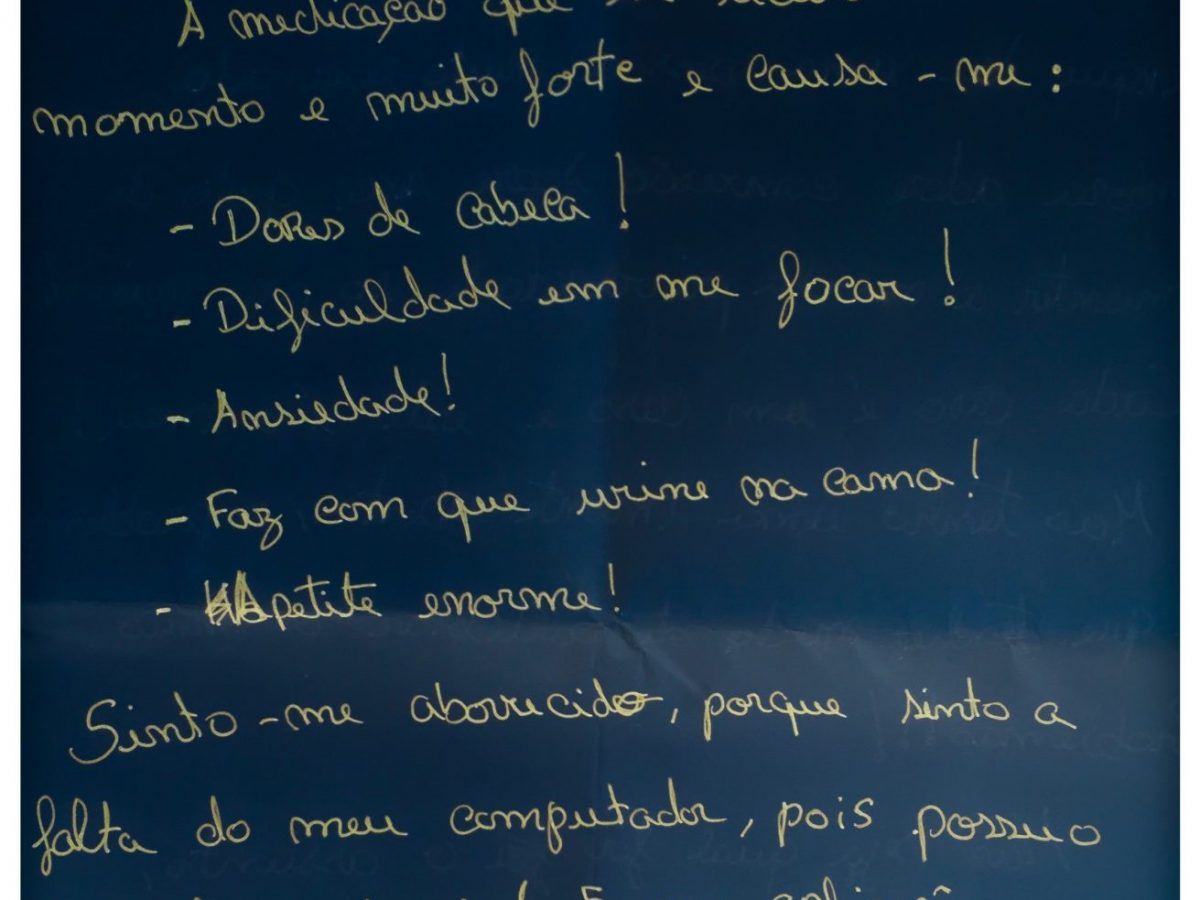 A medicação que
momento e muito forte e causa-me:
- Dores de cabeca!
- Dificuldade em me focar!
- Ansiedade!
- Faz com que urine na cama!
- Apetite enorme!
Sinto-me aborrecido, porque sinto a
falta do meu computador, pois possuo